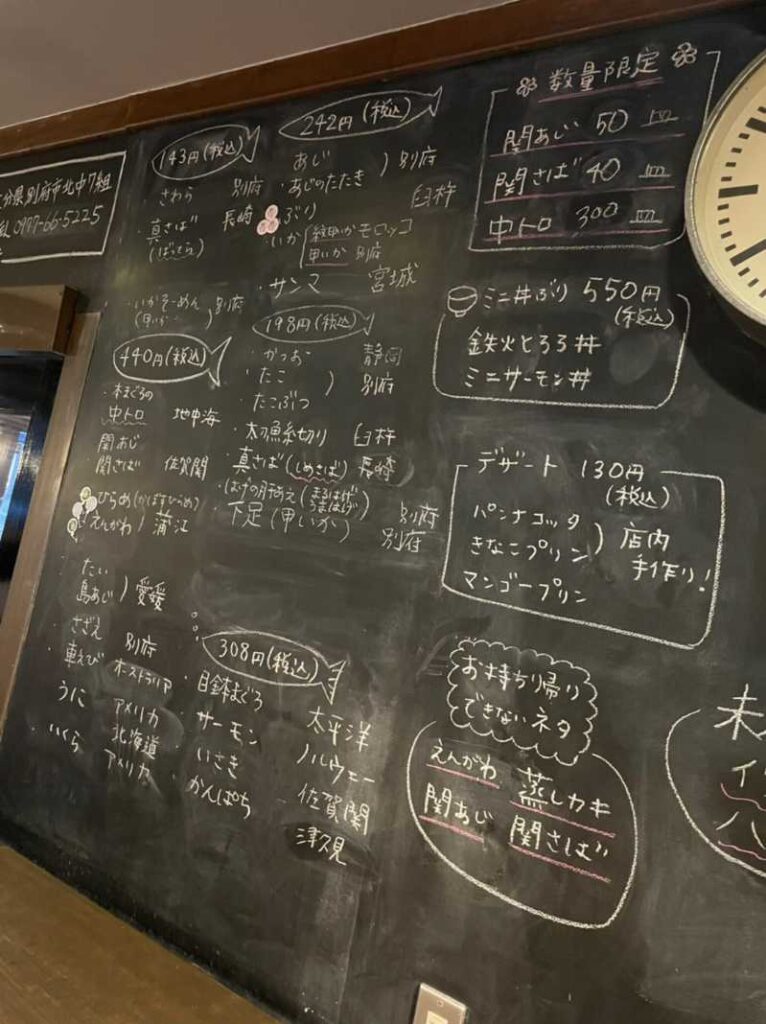 分県別府市北中7組
0977-66-5225
143円(税込)
・さわら 別府
・真さば 長崎
(ばってら)
・いかそーめん 別府
(甲いか)
242円(税込)
あじ
・あじのたたき ) 別府
・ぶり 臼杵
・いか 紋甲いか モロッコ
甲いか 別府
・サンマ 宮城
440円(税込)
・本まぐろの
中トロ 地中海
関あじ
関さば 佐賀関
ひらめ(かぼすひらめ)
えんがわ ) 蒲江
・たい
島あじ ) 愛媛
・さざえ 別府
・車えび オーストラリア
うに アメリカ
北海道
・いくら アメリカ
198円(税込)
・かつお 静岡
・たこ
・たこぶつ ) 別府
・太刀魚糸切り 臼杵
・真さば(しめさば) 長崎
・はげの肝あえ(まるはげ
うまはげ) 別府
・下足(甲いか) 別府
308円(税込)
・目鉢まぐろ 太平洋
・サーモン ノルウェー
・いさき 佐賀関
・かんぱち 津久見
数量限定
関あじ 50皿
関さば 40皿
中トロ 300皿
ミニ丼ぶり 550円
(税込)
鉄火とろろ丼
ミニサーモン丼
デザート 130円
(税込)
パンナコッタ
きなこプリン ) 店内
手作り!
マンゴープリン
お持ち帰り
できないネタ
えんがわ 蒸しカキ
関あじ 関さば
未
イ
ハ